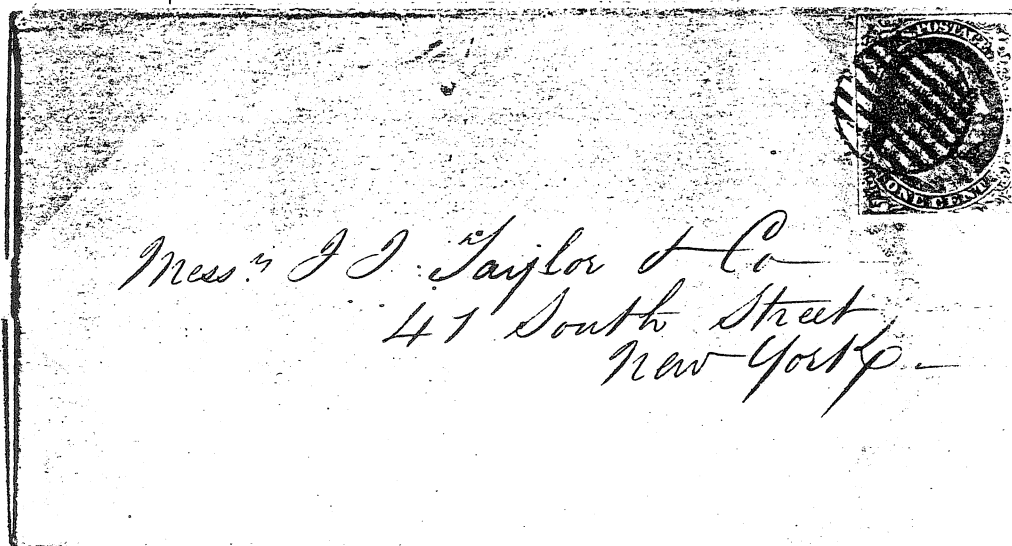 U.S. POSTAGE
ONE CENT
Mess.rs J J. Taylor & Co
47 South Street
New York